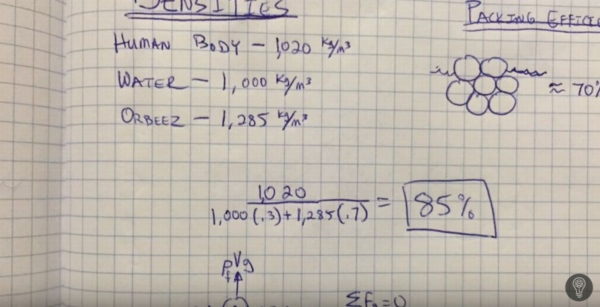 DENSITIES
HUMAN BODY – 1,020 kg/m³
WATER – 1,000 kg/m³
ORBEEZ – 1,285 kg/m³
PACKING EFFICIE
≈ 70%
1,020
1,000(.3)+1,285(.7) = 85%
ρVg
ΣF = 0